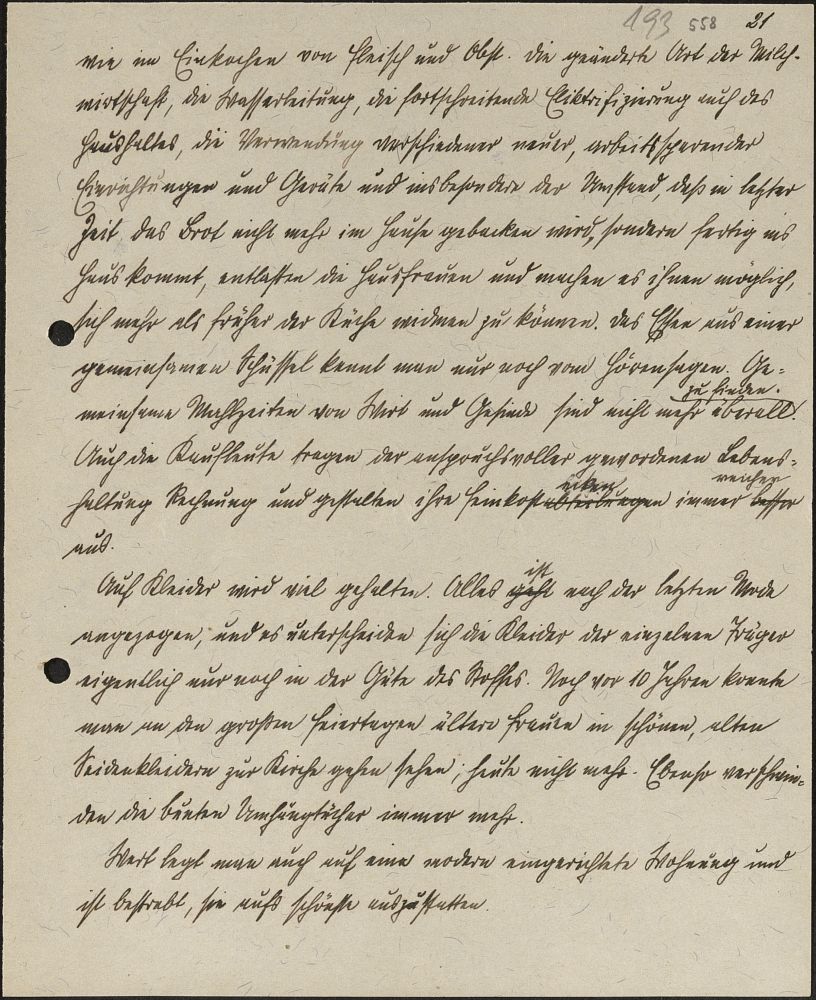 193 558 21
wie im Einkochen von Fleisch und Obst. Die geänderte Art der Milch-
wirtschaft, die Wasserleitung, die fortschreitende Elektrifizierung auch des
Haushaltes, die Verwendung verschiedener neuer, arbeitssparender
Einrichtungen und Geräte und insbesondere der Umstand, daß in letzter
Zeit das Brot nicht mehr im Hause gebacken wird, sondern fertig ins
Haus kommt, entlasten die Hausfrauen und machen es ihnen möglich,
sich mehr als früher der Küche widmen zu können. Das Essen aus einer
gemeinsamen Schüssel kennt man nur noch vom Hörensagen. Ge-
zu finden.
meinsame Mahlzeiten von Wirt und Gesinde sind nicht mehr überall.
Auch die Kaufleute tragen der anspruchsvoller gewordenen Lebens-
ecken reicher
haltung Rechnung und gestalten ihre Feinkostabteilungen immer besser
aus.
ist
Auf Kleider wird viel gehalten. Alles geht nach der letzten Mode
angezogen, und es unterscheiden sich die Kleider der einzelnen Träger
eigentlich nur noch in der Güte des Stoffes. Noch vor 10 Jahren konnte
man an den großen Feiertagen ältere Frauen in schönen, alten
Seidenkleidern zur Kirche gehen sehen; heute nicht mehr. Ebenso verschwin-
den die bunten Umhängtücher immer mehr.
Wert legt man auch auf eine modern eingerichtete Wohnung und
ist bestrebt, sie aufs schönste auszustatten.